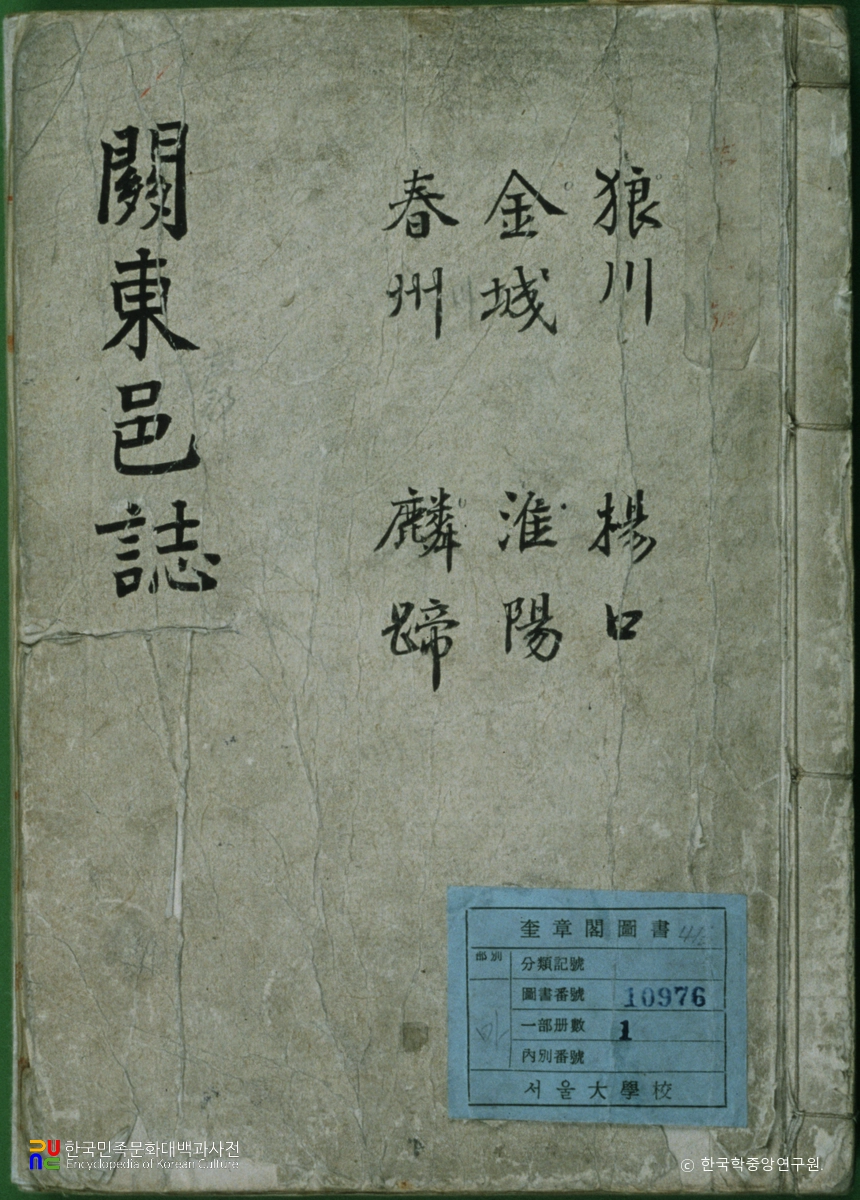 狼川 楊口
金城 淮陽
春州 麟蹄
關東邑誌
奎章閣圖書
部別
分類記號
圖書番號 10976
一部册數 1
內別番號
서울大學校
한국민족문화대백과사전
Encyclopedia of Korean Culture
© 한국학중앙연구원